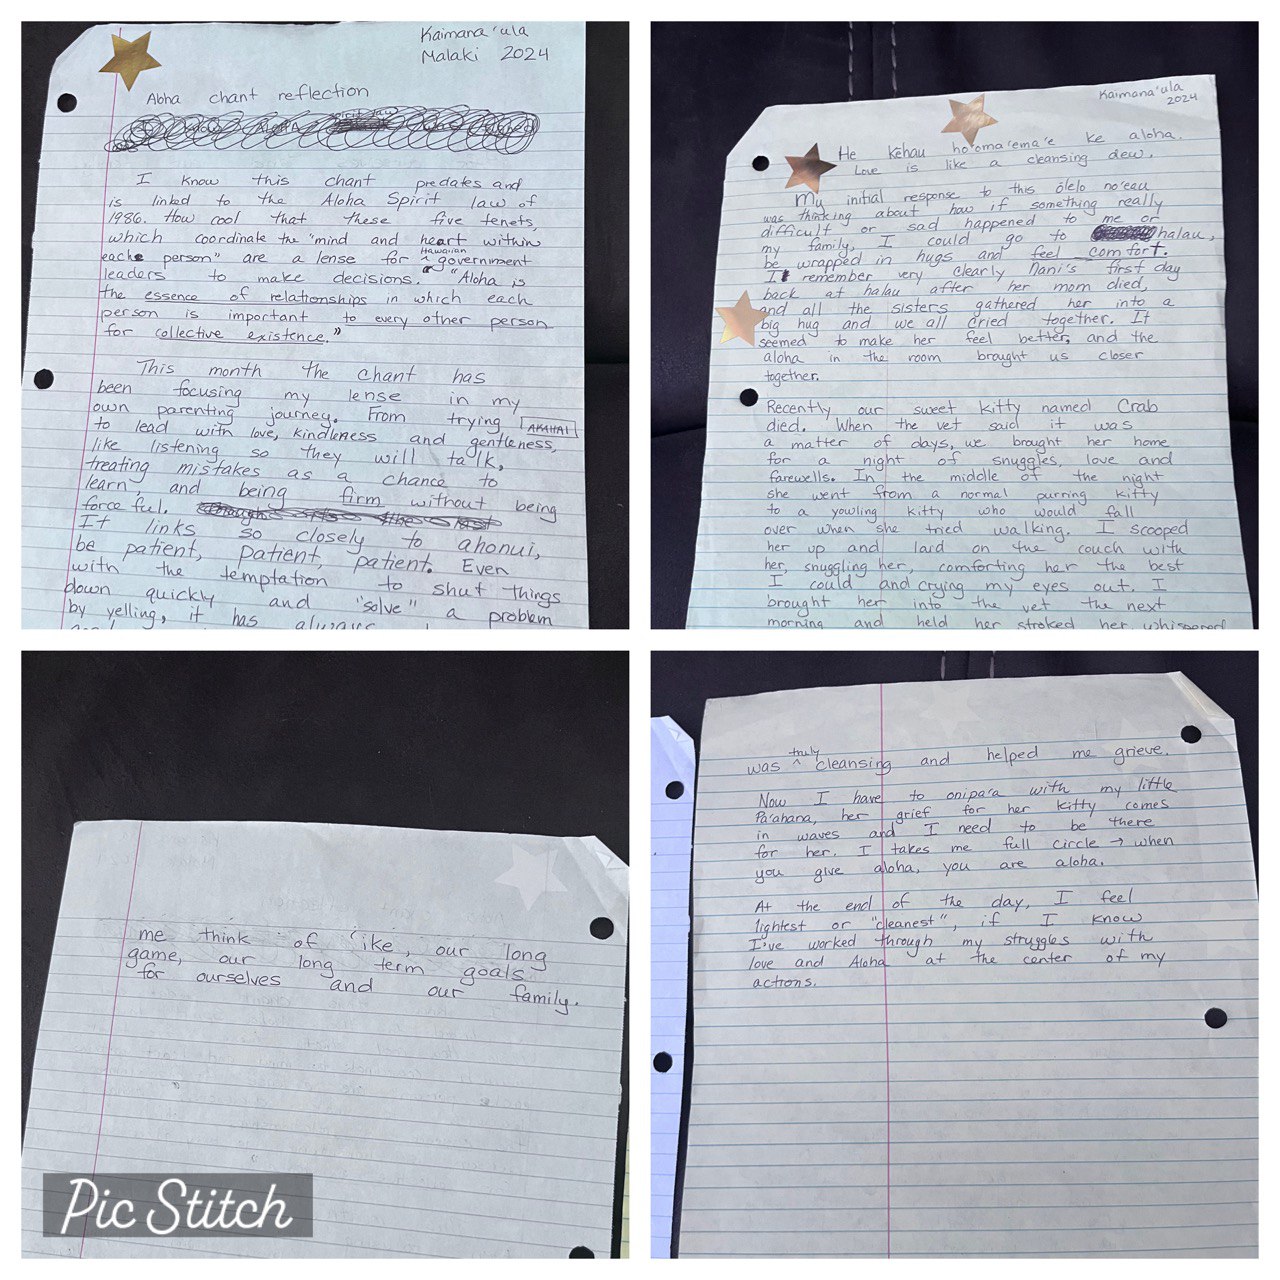 Kaimana'ula
Malaki 2024
Aloha chant reflection
I know this chant predates and
is linked to the Aloha Spirit law of
1986. How cool that these five tenets,
which coordinate the "mind and heart within
each person" are a lense for Hawaiian government
leaders to make decisions. "Aloha is
the essence of relationships in which each
person is important to every other person
for collective existence."
This month the chant has
been focusing my lense in my
own parenting journey. From trying AKAHAI
to lead with love, kindleness and gentleness,
like listening so they will talk,
treating mistakes as a chance to
learn, and being firm without being
forceful.
It links so closely to ahonui,
be patient, patient, patient. Even
with the temptation to shut things
down quickly and "solve" a problem
by yelling, it has always
Kaimana'ula
2024
He kēhau ho'oma'ema'e ke aloha.
Love is like a cleansing dew.
My initial response to this ōlelo no'eau
was thinking about how if something really
difficult or sad happened to me or
my family, I could go to halau,
be wrapped in hugs and feel comfort.
I remember very clearly Nani's first day
back at halau after her mom died,
and all the sisters gathered her into a
big hug and we all cried together. It
seemed to make her feel better, and the
aloha in the room brought us closer
together.
Recently our sweet kitty named Crab
died. When the vet said it was
a matter of days, we brought her home
for a night of snuggles, love and
farewells. In the middle of the night
she went from a normal purring kitty
to a yowling kitty who would fall
over when she tried walking. I scooped
her up and laid on the couch with
her, snuggling her, comforting her the best
I could and crying my eyes out. I
brought her into the vet the next
morning and held her stroked her, whispered
me think of 'ike, our long
game, our long term goals
for ourselves and our family.
was truly cleansing and helped me grieve.
Now I have to onipa'a with my little
Pa'ahana, her grief for her kitty comes
in waves and I need to be there
for her. I takes me full circle → when
you give aloha, you are aloha.
At the end of the day, I feel
lightest or "cleanest", if I know
I've worked through my struggles with
love and Aloha at the center of my
actions.
Pic Stitch